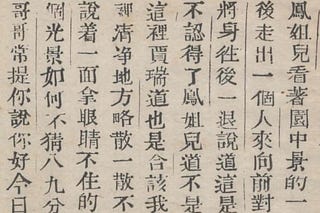 鳳姐兒看著園中景的一
後走出一個人來向前對
將身徃後一退說道這是
不認得了鳳姐兒道不是
這裡賈瑞道也是合該我
裡清净地方略散一散不
說着一面拿眼睛不住的
個光景如何不猜八九分
哥哥常提你說你好今日